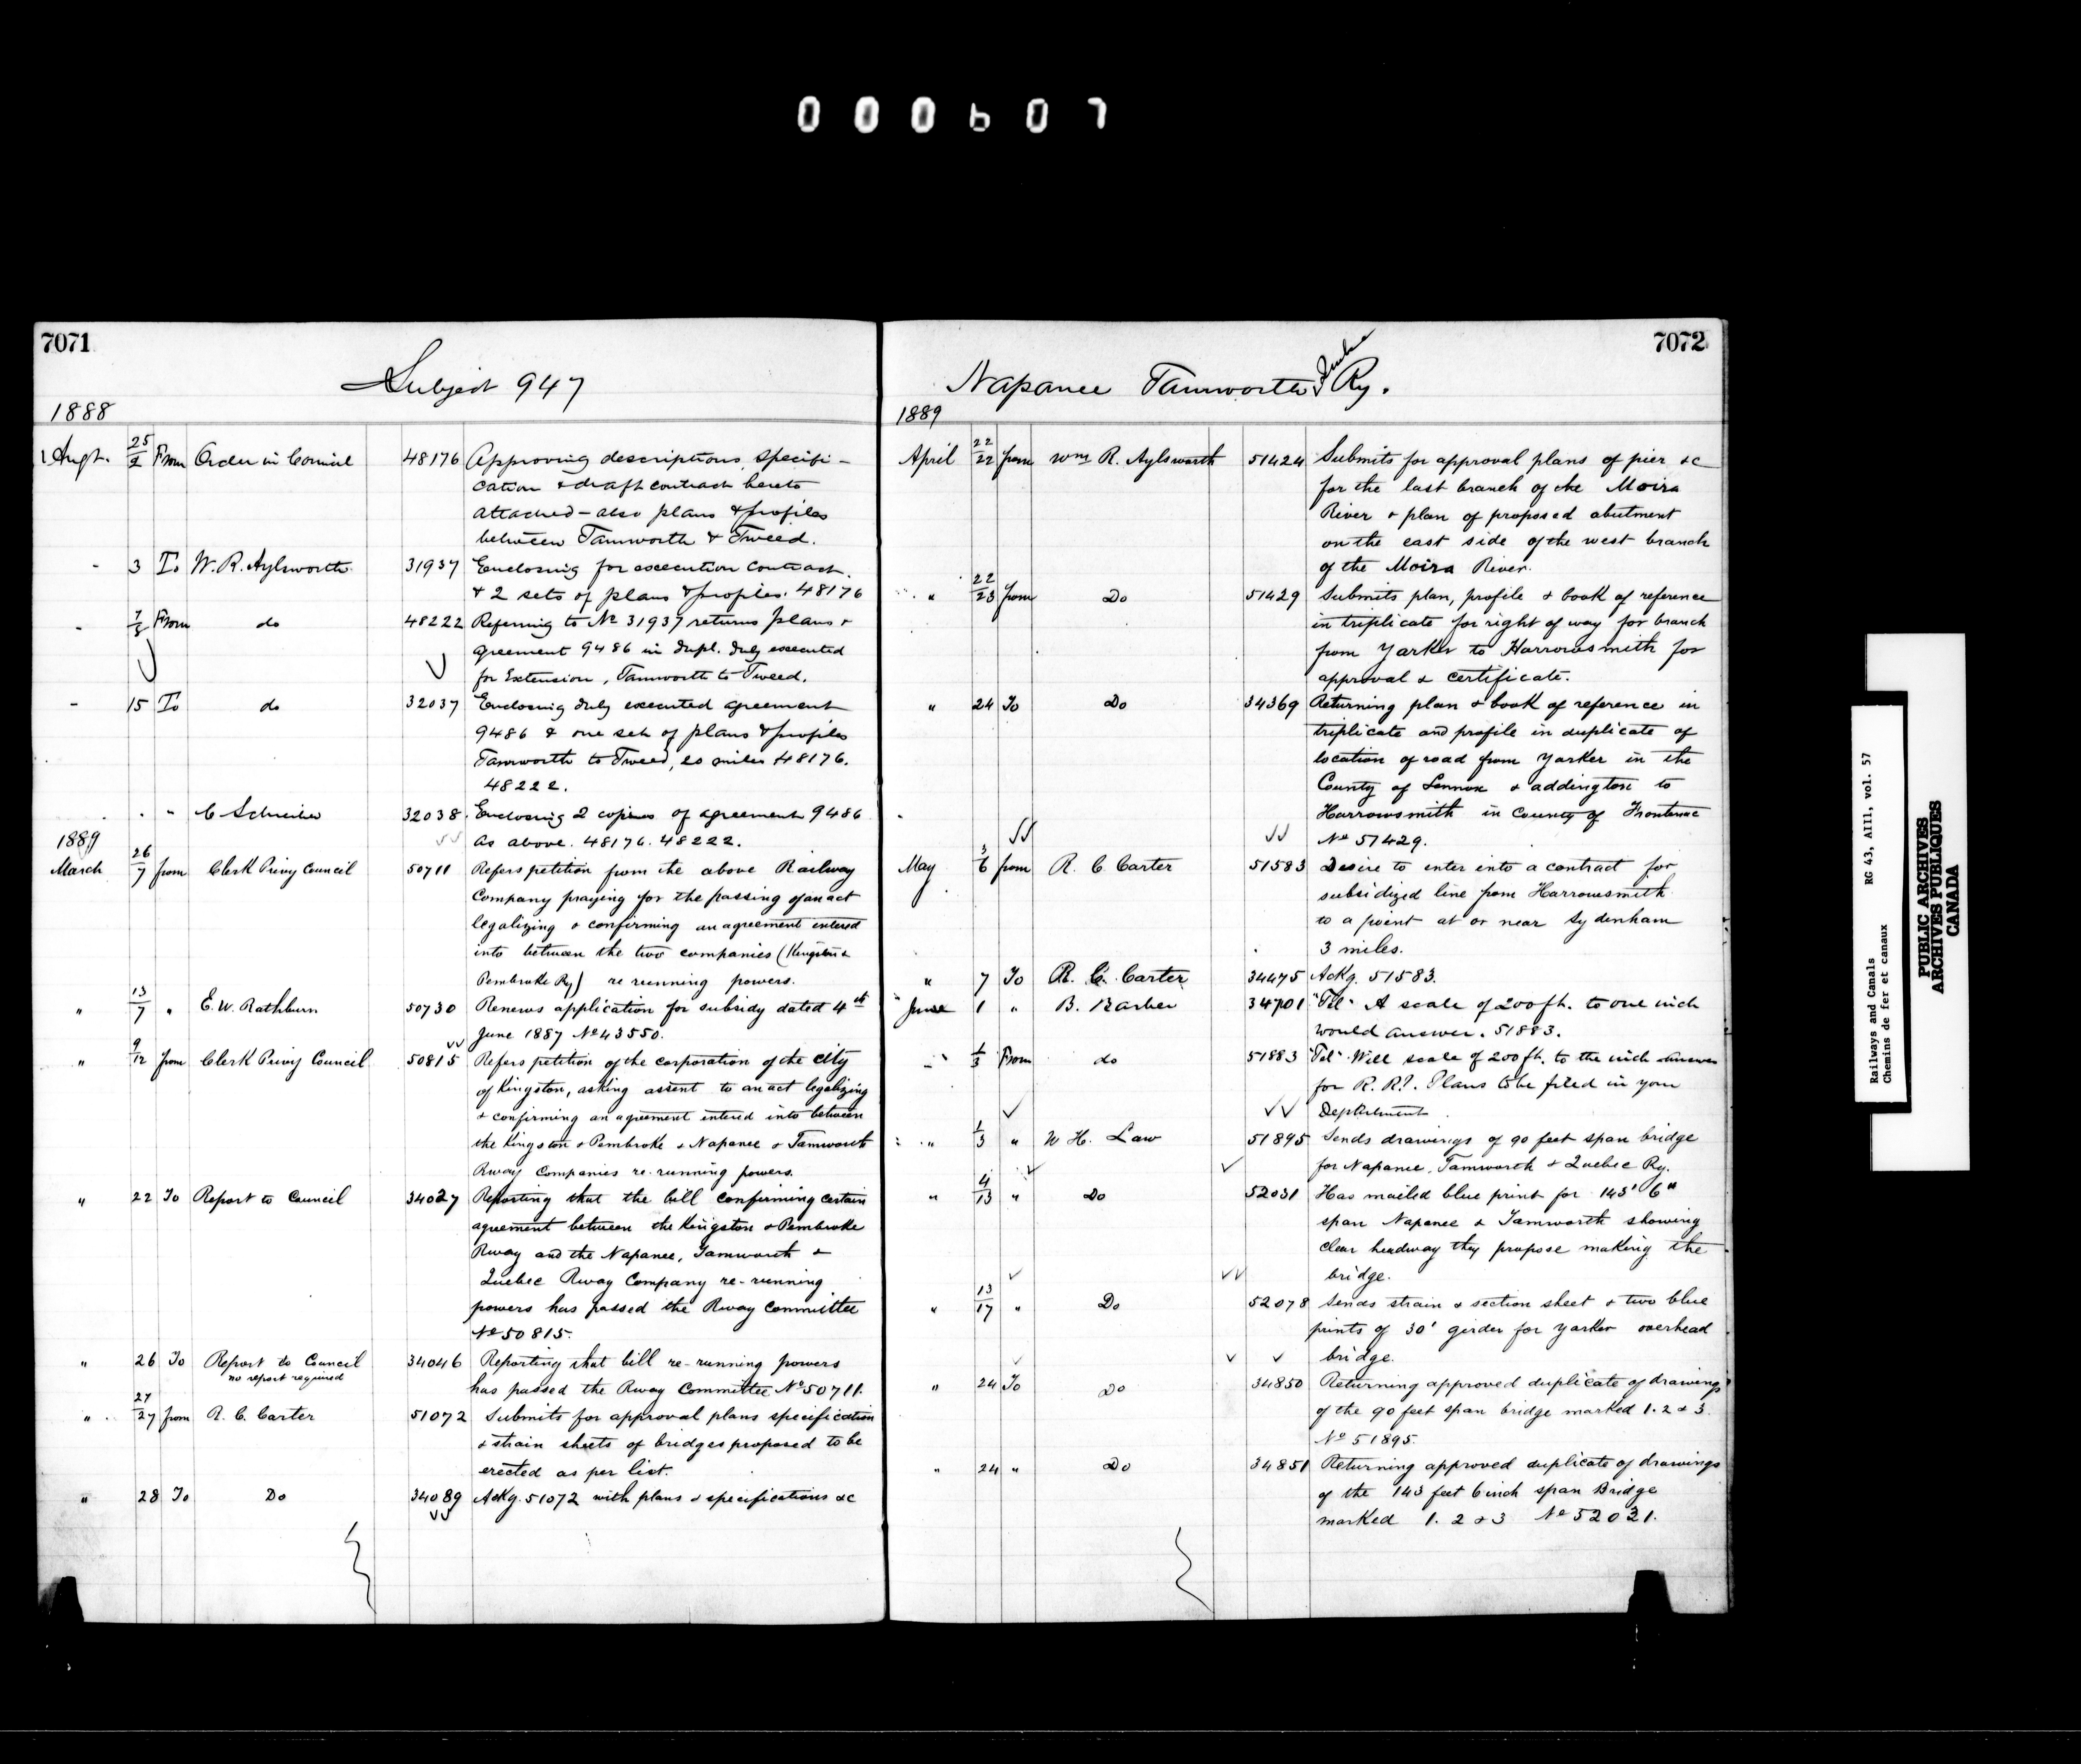 000607
7071
Subject 947
1888
Augt. 25/2 From Order in Council 48176 Approving descriptions, specifi-
cation & draft contract hereto
attached - also plans & profiles
between Tamworth & Tweed.
- 3 To W. R. Aylsworth 31937 Enclosing for execution contract
& 2 sets of plans & profiles. 48176
- 7/8 From do 48222 Referring to No 31937 returns plans &
agreement 9486 in dupl. duly executed
for Extension, Tamworth to Tweed.
- 15 To do 32037 Enclosing duly executed agreement
9486 & one set of plans & profiles
Tamworth to Tweed, 20 miles 48176.
48222.
" C Schreiber 32038. Enclosing 2 copies of agreement 9486
As above. 48176. 48222.
1889
March 26/7 from Clerk Privy Council 50711 Refers petition from the above Railway
Company praying for the passing of an act
legalizing & confirming an agreement entered
into between the two companies (Kingston &
Pembroke Ry) re running powers.
" 13/7 " E. W. Rathburn 50730 Renews application for subsidy dated 4th
June 1887 No 43550.
" 9/12 from Clerk Privy Council 50815 Refers petition of the corporation of the city
of Kingston, asking assent to an act legalizing
& confirming an agreement entered into between
the Kingston & Pembroke & Napanee & Tamworth
Rway Companies re-running powers.
" 22 To Report to Council 34027 Reporting that the bill confirming certain
agreement between the Kingston & Pembroke
Rway and the Napanee, Tamworth &
Quebec Rway Company re-running
powers has passed the Rway Committee
No 50815.
" 26 To Report to Council 34046 Reporting that bill re-running powers
no report required
has passed the Rway Committee No 50711.
" 27/27 from R. C. Carter 51072 Submits for approval plans specification
& strain sheets of bridges proposed to be
erected as per list.
" 28 To Do 34089 Ackg. 51072 with plans & specifications &c
7072
Napanee Tamworth & Quebec Ry.
1889
April 22/22 from Wm R. Aylsworth 51424 Submits for approval plans of pier &c
for the last branch of the Moira
River & plan of proposed abutment
on the east side of the west branch
of the Moira River.
" 22/23 from Do 51429 Submits plan, profile & book of reference
in triplicate for right of way for branch
from Yarker to Harrowsmith for
approval & certificate.
" 24 To Do 34369 Returning plan & book of reference in
triplicate and profile in duplicate of
location of road from Yarker in the
County of Lennox & addington to
Harrowsmith in County of Frontenac
No 51429.
May 3/6 from R. C. Carter 51583 Desire to enter into a contract for
subsidized line from Harrowsmith
to a point at or near Sydenham
3 miles.
" 7 To R. C. Carter 34475 Ackg. 51583.
June 1 " B. Barber 34701 "Tel" A scale of 200 ft. to one inch
would answer. 51883.
" 1/3 From do 51883 "Tel" Will scale of 200 ft. to the inch answer
for R. Rd. Plans to be filed in your
Department
" 1/3 " W H. Law 51895 Sends drawings of 90 feet span bridge
for Napanee, Tamworth & Quebec Ry.
" 4/13 " Do 52031 Has mailed blue print for 143' 6"
span Napanee & Tamworth showing
clear headway they propose making the
bridge.
" 13/17 " Do 52078 Sends strain & section sheet & two blue
prints of 30' girder for Yarker overhead
bridge.
" 24 To Do 34850 Returning approved duplicate of drawings
of the 90 feet span bridge marked 1. 2 & 3.
No 51895.
" 24 " Do 34851 Returning approved duplicate of drawings
of the 143 feet 6 inch span Bridge
marked 1. 2 & 3 No 52031.
Railways and Canals RG 43, AIII, vol. 57
Chemins de fer et canaux
PUBLIC ARCHIVES
ARCHIVES PUBLIQUES
CANADA